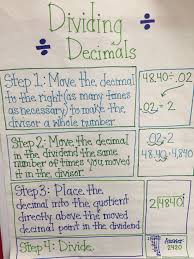 Dividing
÷ Decimals ÷
Step 1: Move the decimal
to the right (as many times
as necessary) to make the
divisor a whole number.
48.40÷.02
.02 = 2
Step 2: Move the decimal
in the dividend the same
number of times you moved
it in the divisor.
.02 = 2
48.40 = 4,840
Step 3: Place the
decimal into the quotient
directly above the moved
decimal point in the dividend
2)4840
Step 4: Divide.
Answer
2420